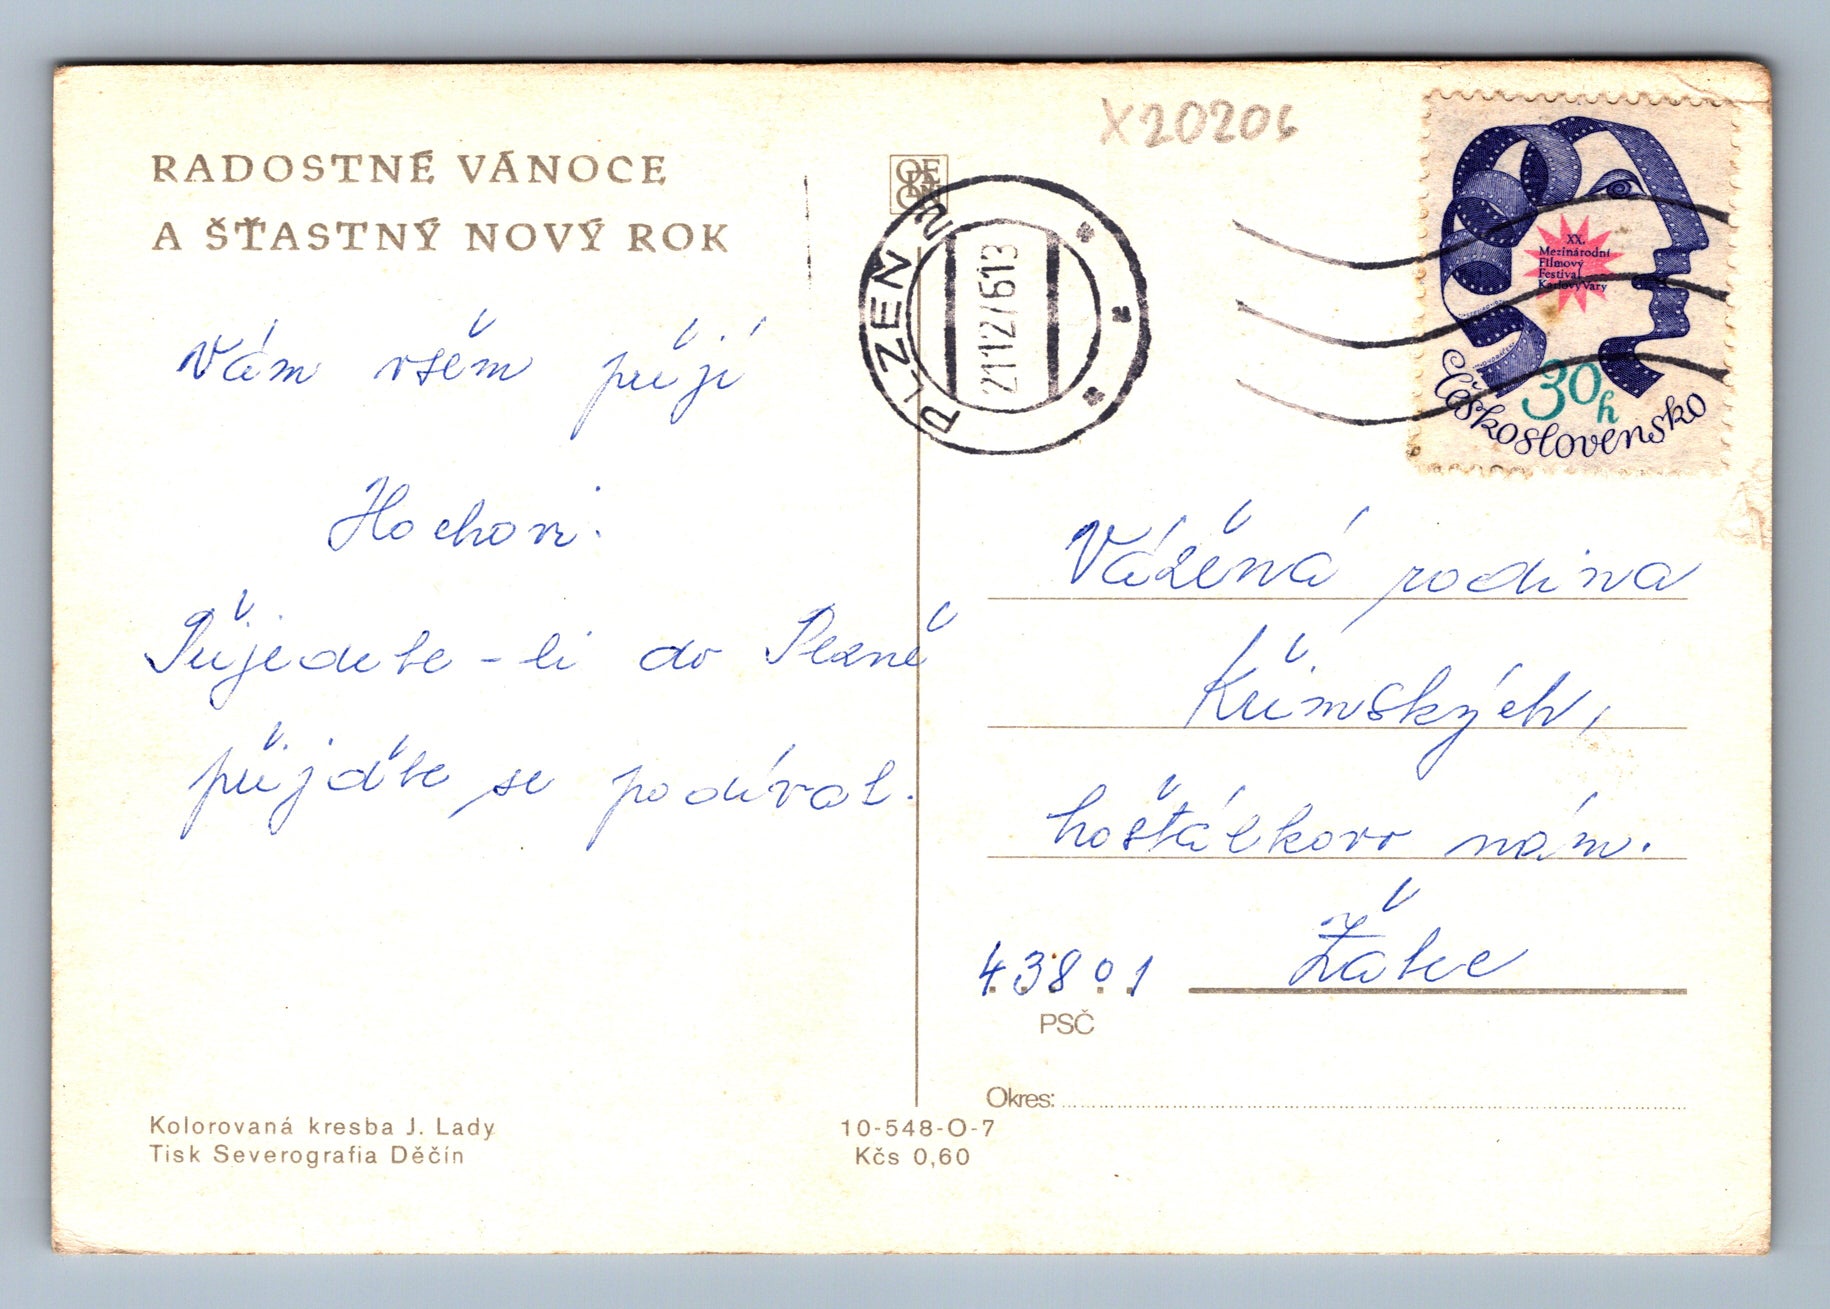 RADOSTNÉ VÁNOCE
A ŠŤASTNÝ NOVÝ ROK
Vám všem přejí
Hochovi.
Přijedete-li do Plzně
přijďte se podívat.
Kolorovaná kresba J. Lady
Tisk Severografia Děčín
10-548-O-7
Kčs 0,60
X20206
PLZEŇ 2
21127613
XX.
Mezinárodní
Filmový
Festival
Karlovy Vary
30h
Československo
Vážená rodina
Křimských,
hošťálkovo nám.
43801 Žatec
PSČ
Okres: